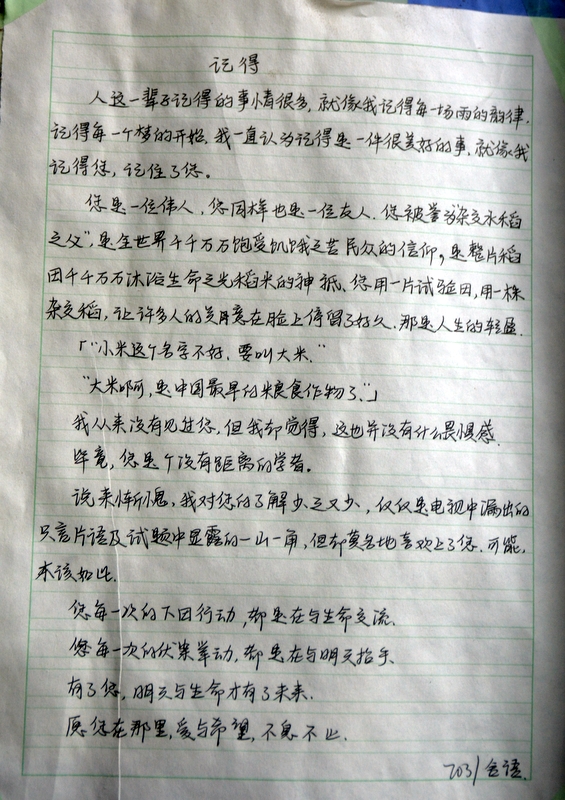 记得
人这一辈子记得的事情很多,就像我记得每一场雨的韵律,
记得每一个梦的开始,我一直认为记得是一件很美好的事,就像我
记得您,记住了您。
您是一位伟人,您同样也是一位友人.您被誉为杂交水稻
之父”,是全世界千千万万饱受饥饿之苦民众的信仰,是整片稻
田千千万万沐浴生命之光稻米的神祇、您用一片试验田,用一株
杂交稻,让许多人的笑意在脸上停留了好久.那是人生的轻盈.
「“小米这个名字不好,要叫大米.”
“大米啊,是中国最早的粮食作物了.”」
我从来没有见过您,但我却觉得,这也并没有什么畏惧感.
毕竟,您是个没有距离的学者。
说来惭愧,我对您的了解少之又少,仅仅是电视中漏出的
只言片语及试题中显露的一山一角,但却莫名地喜欢上了您.可能,
本该如此.
您每一次的下田行动,都是在与生命交流.
您每一次的伏案举动,都是在与明天招手.
有了您,明天与生命才有了未来.
愿您在那里,爱与希望,不息不止.
703/ 语